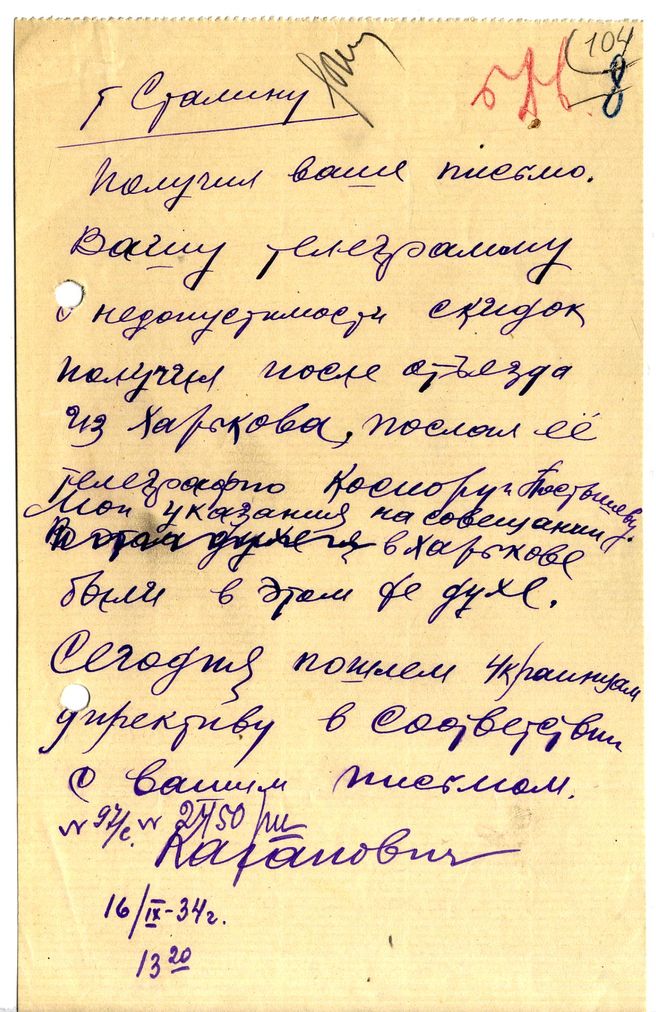 104
8
т Сталину
Получил ваше письмо.
Вашу телеграмму
о недопустимости скидок
получил после отъезда
из Харькова, послал её
телеграфно Косиору и Постышеву.
Мои указания на совещании
в Харькове
были в этом же духе.
Сегодня пошлем украинцам
директиву в соответствии
с вашим письмом.
Каганович
16/IX-34г.
13 20